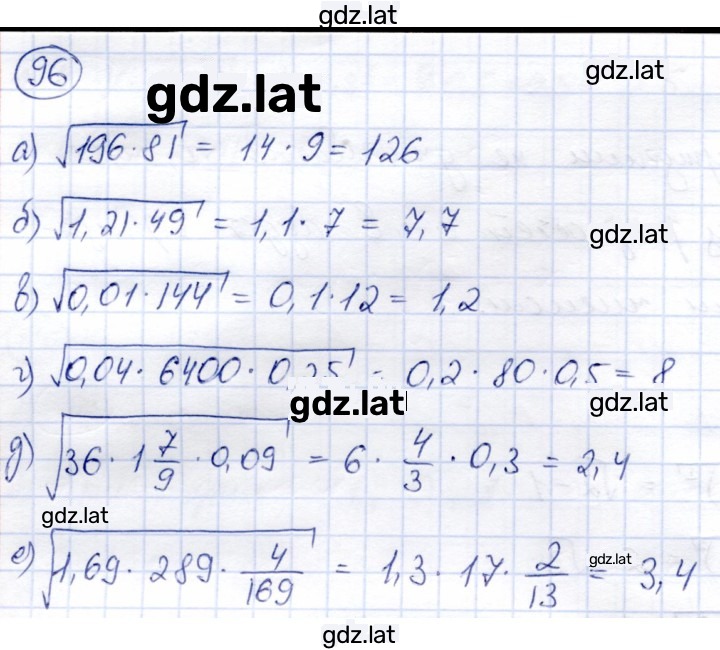 gdz.lat
96
gdz.lat
gdz.lat
а) √196·81 = 14·9 = 126
б) √1,21·49 = 1,1·7 = 7,7
gdz.lat
в) √0,01·144 = 0,1·12 = 1,2
г) √0,04·6400·0,25 = 0,2·80·0,5 = 8
gdz.lat
gdz.lat
д) √36·1 7/9·0,09 = 6·4/3·0,3 = 2,4
gdz.lat
е) √1,69·289·4/169 = 1,3·17·2/13 = 3,4
gdz.lat
gdz.lat